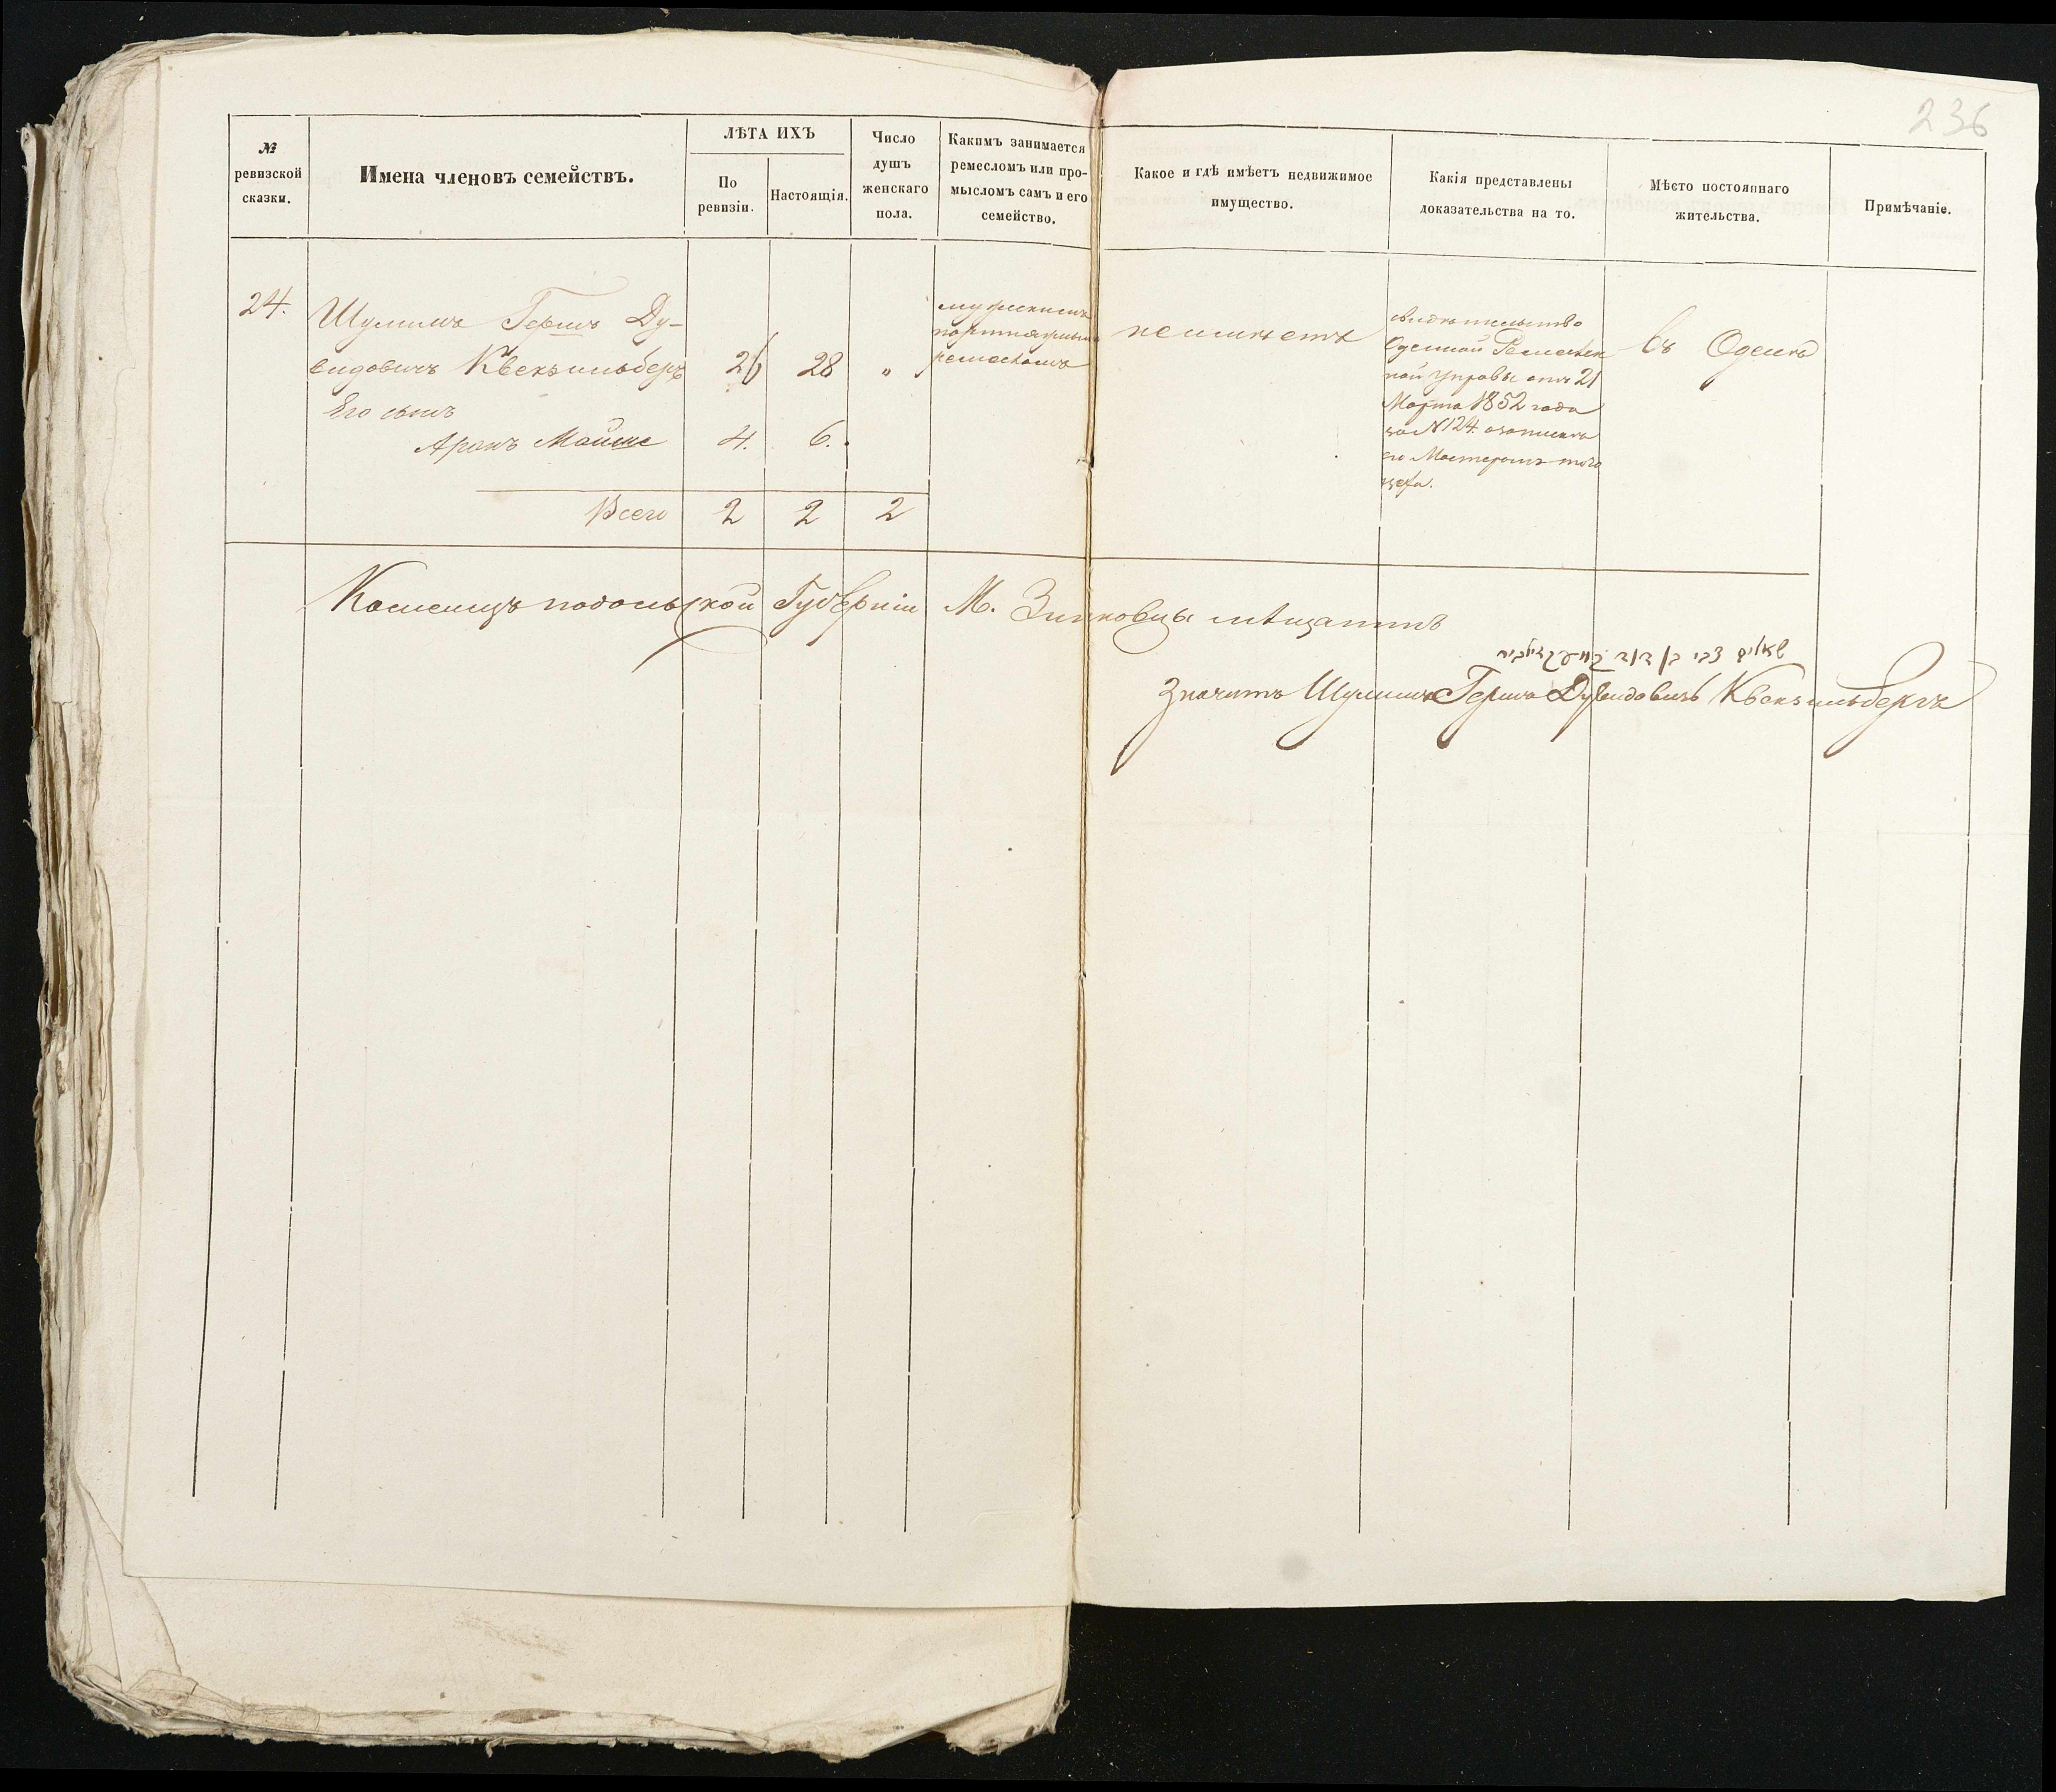 236
№
ревизской
сказки.
Имена членовъ семействъ.
ЛѢТА ИХЪ
По
ревизіи.
Настоящія.
Число
душъ
женскаго
пола.
Какимъ занимается
ремесломъ или про-
мысломъ самъ и его
семейство.
Какое и гдѣ имѣетъ недвижимое
имущество.
Какія представлены
доказательства на то.
Мѣсто постояннаго
жительства.
Примѣчаніе.
24.
Шулимъ Гершъ Ду-
видовичъ Квекзильберъ
26
28
„
Его сынъ
Аронъ Мойше
4.
6.
Всего
2
2
2
мужскимъ
портняжнымъ
ремесломъ
неимѣетъ
свидѣтельство
Одесской Ремеслен
ной управы отъ 21
Марта 1852 года
за №124. о записке
его Мастеромъ того
цеха.
въ Одессѣ
Каменецъ подольской Губерніи М. Зинковцы мѣщанинъ
צבי בן דוד
Значитъ Шулимъ Гершъ Дувидовичъ Квекзильберъ